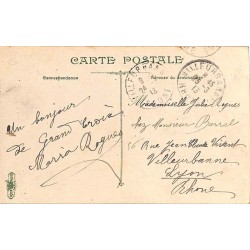 CARTE POSTALE
Correspondance
Adresse du destinataire
un bonjour
de Grand Croix
Maria Rogues
Mademoiselle Julie Rogues
chez Monsieur Borrel
56 Rue Jean Claude Vivant
Villeurbanne
Lyon
Rhone